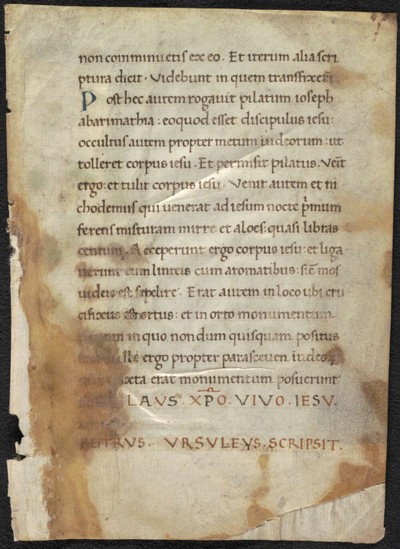 non comminuetis ex eo. Et iterum alia scri
ptura dicit. Videbunt in quem transfixerūt.
Post hec autem rogavit pilatum ioseph
abarimathia: eo quod esset discipulus iesu:
occultus autem propter metum iudeorum: ut
tolleret corpus iesu. Et permisit pilatus. Venit
ergo: et tulit corpus iesu. Venit autem et ni
chodemus qui venerat ad iesum nocte p̄mum
ferens misturam mirre et aloes: quasi libras
centum. Acceperunt ergo corpus iesu: et liga
verunt eum linteis cum aromatibus: sic̄ mos
iudeis est sepelire. Erat autem in loco ubi cru
cifixus est ortus: et in orto monumentum
in quo nondum quisquam positus
ergo propter parasceven iudeor
iuxta erat monumentum posuerunt
LAUS. XPO. VIVO. IESV.
PETRUS. VRSVLEVS. SCRIPSIT.